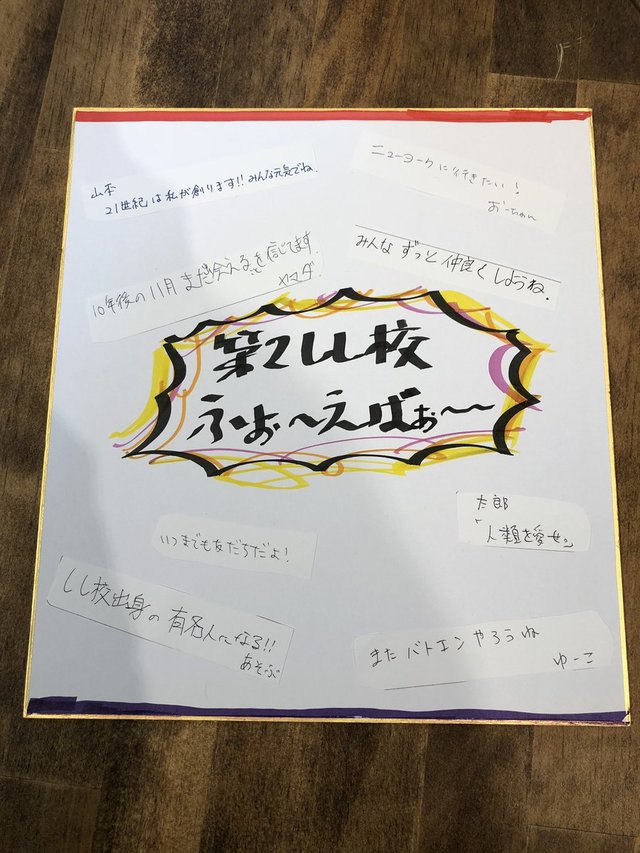 山本
21世紀は私が創ります!!みんな元気でね.
ニューヨークに行きたい!
おーちゃん
10年後の11月まだ会えるを信じてます.
ヤマダ.
みんな ずっと 仲良く しようね.
第2しし校
ふぉ〜えばぁ〜〜
太郎
「人類を愛せ」
いつまでも友だちだよ!
しし校出身の有名人になる!!
あそぶ
また バトエン やろうね
ゆーこ